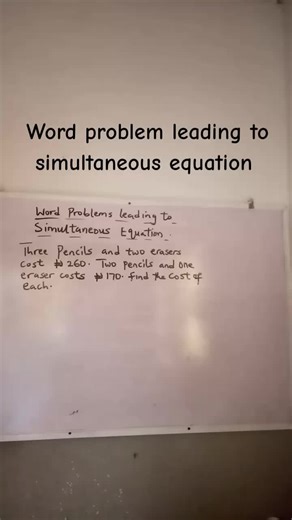 Word problem leading to
simultaneous equation
Word Problems leading to
Simultaneous Equation.
Three Pencils and two erasers
cost ₦260. Two pencils and one
eraser costs ₦170. find the cost of
each.